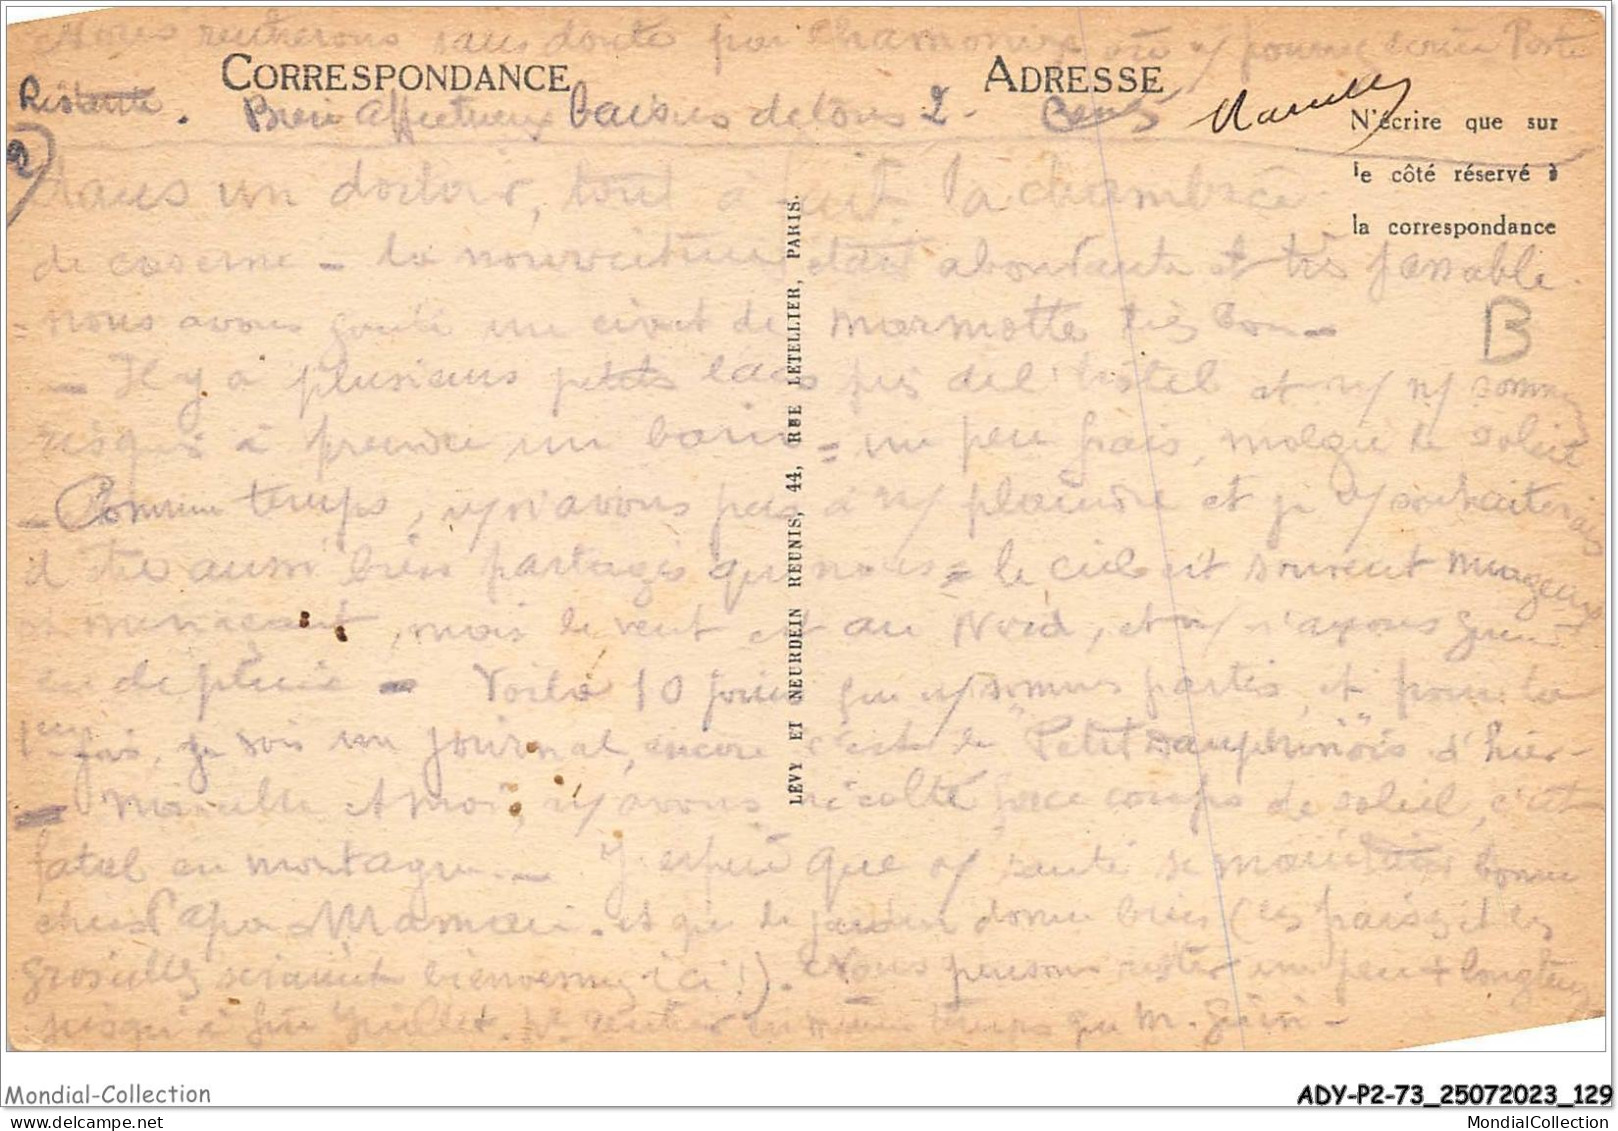 Nous rentrerons sans doute par Chamonix où v/ pourrez écrire Poste
CORRESPONDANCE
ADRESSE
Restante. Bien affectueux baisers de tous 2 -
N'écrire que sur
le côté réservé à
la correspondance
2)
dans un dortoir, tout à fait la chambrée
de caserne - la nourriture était abondante et très passable
= nous avons goûté un civet de marmotte très bon -
B
- Il y a plusieurs petits lacs près de l'hôtel et n/ n/ sommes
risqués à prendre un bain = un peu frais, malgré le soleil
- Comme temps, n/ n'avons pas à n/ plaindre et je v/ souhaiterais
d'être aussi bien partagés que nous = le ciel est souvent nuageux
et menaçant, mais le vent est au Nord, et n/ n'avons guère
eu de pluie - Voilà 10 jours que n/ sommes partis, et pour la
1ère fois, je vois un journal, encore c'est le "Petit Dauphinois" d'hier -
= Marcelle et moi, n/ avons récolté force coups de soleil, c'est
fatal en montagne. - J'espère que v/ santé se maintient bonne
chers Papa & Maman. et que le jardin donne bien (les fraises et les
groseilles seraient bienvenues ici !). Nous pensons rester un peu + longtemps
jusqu'à fin Juillet. Pr rentrer en même temps que M.
LÉVY ET NEURDEIN RÉUNIS, 44, RUE LETELLIER, PARIS.
Mondial-Collection
ADY-P2-73_25072023_129
MondialCollection.com